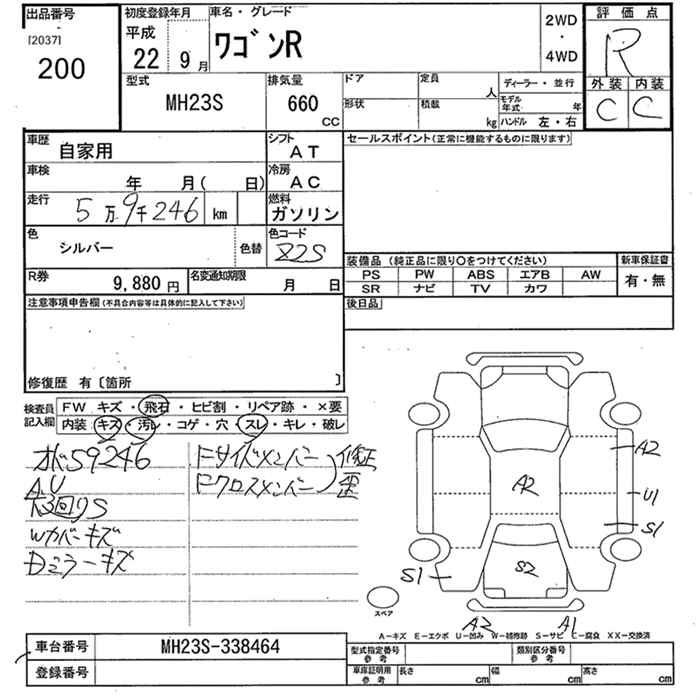 出品番号
[2037]
200
初度登録年月
平成
22 9月
車名・グレード
ワゴンR
2WD
・
4WD
評価点
R
外装 内装
C C
型式
MH23S
排気量
660
CC
ドア
形状
定員
人
積載
kg
ディーラー・並行
モデル年式 年
ハンドル 左・右
車歴
自家用
シフト
AT
車検
年 月( 日)
冷房
AC
走行
5万9千246 km
燃料
ガソリン
色
シルバー
色替
色コード
Z2S
R券
9,880円
名変通知期限
月 日
セールスポイント(正常に機能するものに限ります)
装備品(純正品に限り○をつけてください)
新車保証書
PS PW ABS エアB AW
SR ナビ TV カワ
有・無
後日品
注意事項申告欄(不具合内容等は具体的に記入して下さい)
修復歴 有〔箇所 〕
検査員記入欄
FW キズ・飛石・ヒビ割・リペア跡・×要
内装・キズ・汚レ・コゲ・穴・スレ・キレ・破レ
オドS9246
AU
Wカバーキズ
Dミラーキズ
Fサイドメンバー
Fクロスメンバー
修正
歪
A2
A2
U1
S1
S1
S2
A2 A1
スペア
A−キズ E−エクボ U−凹み W−補修跡 S−サビ C−腐食 XX−交換済
車台番号
MH23S-338464
登録番号
型式指定番号
参考
類別区分番号
参考
車庫証明用
参考
長さ cm
幅 cm
高さ cm